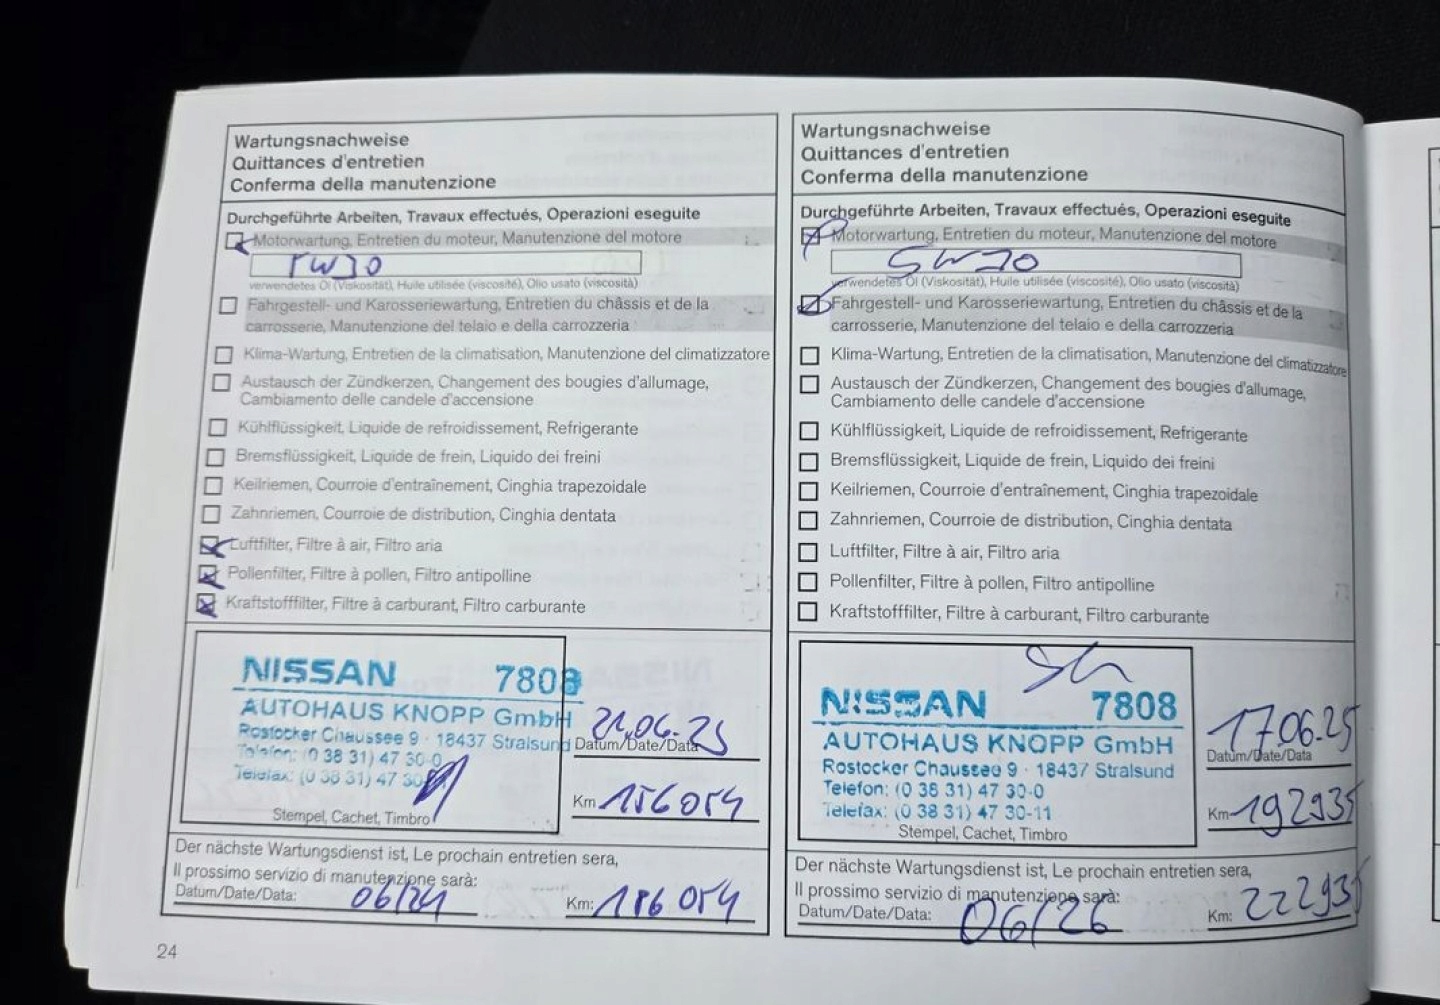 Wartungsnachweise
Quittances d'entretien
Conferma della manutenzione
Durchgeführte Arbeiten, Travaux effectués, Operazioni eseguite
Motorwartung, Entretien du moteur, Manutenzione del motore
5W30
verwendetes Öl (Viskosität), Huile utilisée (viscosité), Olio usato (viscosità)
Fahrgestell- und Karosseriewartung, Entretien du châssis et de la
carrosserie, Manutenzione del telaio e della carrozzeria
Klima-Wartung, Entretien de la climatisation, Manutenzione del climatizzatore
Austausch der Zündkerzen, Changement des bougies d'allumage,
Cambiamento delle candele d'accensione
Kühlflüssigkeit, Liquide de refroidissement, Refrigerante
Bremsflüssigkeit, Liquide de frein, Liquido dei freini
Keilriemen, Courroie d'entraînement, Cinghia trapezoidale
Zahnriemen, Courroie de distribution, Cinghia dentata
Luftfilter, Filtre à air, Filtro aria
Pollenfilter, Filtre à pollen, Filtro antipolline
Kraftstofffilter, Filtre à carburant, Filtro carburante
NISSAN 7808
AUTOHAUS KNOPP GmbH
Rostocker Chaussee 9 · 18437 Stralsund
Telefon: (0 38 31) 47 30-0
Telefax: (0 38 31) 47 30
Stempel, Cachet, Timbro
Datum/Date/Data
Km 156054
Der nächste Wartungsdienst ist, Le prochain entretien sera,
Il prossimo servizio di manutenzione sarà:
Datum/Date/Data: 06/24 Km:
24
Wartungsnachweise
Quittances d'entretien
Conferma della manutenzione
Durchgeführte Arbeiten, Travaux effectués, Operazioni eseguite
Motorwartung, Entretien du moteur, Manutenzione del motore
5W30
verwendetes Öl (Viskosität), Huile utilisée (viscosité), Olio usato (viscosità)
Fahrgestell- und Karosseriewartung, Entretien du châssis et de la
carrosserie, Manutenzione del telaio e della carrozzeria
Klima-Wartung, Entretien de la climatisation, Manutenzione del climatizzatore
Austausch der Zündkerzen, Changement des bougies d'allumage,
Cambiamento delle candele d'accensione
Kühlflüssigkeit, Liquide de refroidissement, Refrigerante
Bremsflüssigkeit, Liquide de frein, Liquido dei freini
Keilriemen, Courroie d'entraînement, Cinghia trapezoidale
Zahnriemen, Courroie de distribution, Cinghia dentata
Luftfilter, Filtre à air, Filtro aria
Pollenfilter, Filtre à pollen, Filtro antipolline
Kraftstofffilter, Filtre à carburant, Filtro carburante
NISSAN 7808
AUTOHAUS KNOPP GmbH
Rostocker Chaussee 9 · 18437 Stralsund
Telefon: (0 38 31) 47 30-0
Telefax: (0 38 31) 47 30-11
Stempel, Cachet, Timbro
17.06.25
Datum/Date/Data
Km 192935
Der nächste Wartungsdienst ist, Le prochain entretien sera,
Il prossimo servizio di manutenzione sarà:
Datum/Date/Data: 06/26 Km: 222935